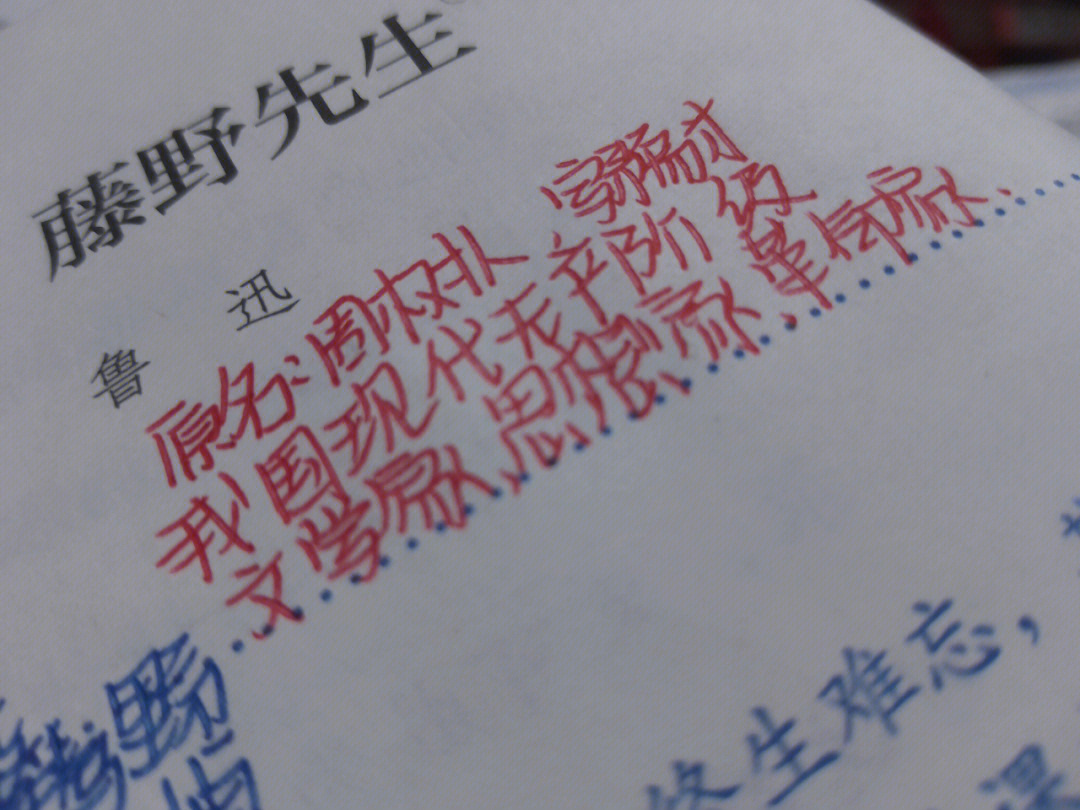 藤野先生
鲁迅
原名:周树人 字豫才
我国现代无产阶级
文学家,思想家,革命家.
藤野
终生难忘,